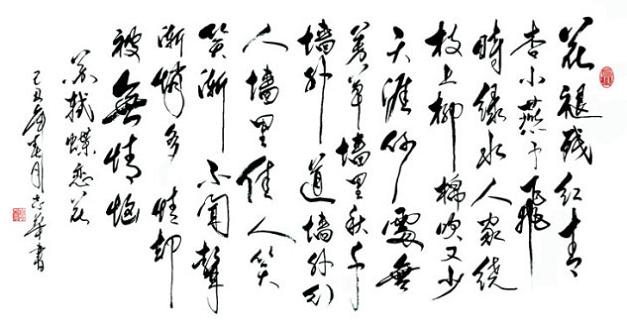 花褪残红青
杏小燕子飞
時绿水人家绕
枝上柳棉吹又少
天涯何處無
芳草墙里秋千
墙外道墙外行
人墙里佳人笑
笑渐不闻聲
渐悄多情却
被無情恼
苏轼蝶恋花
己丑年春月志華書